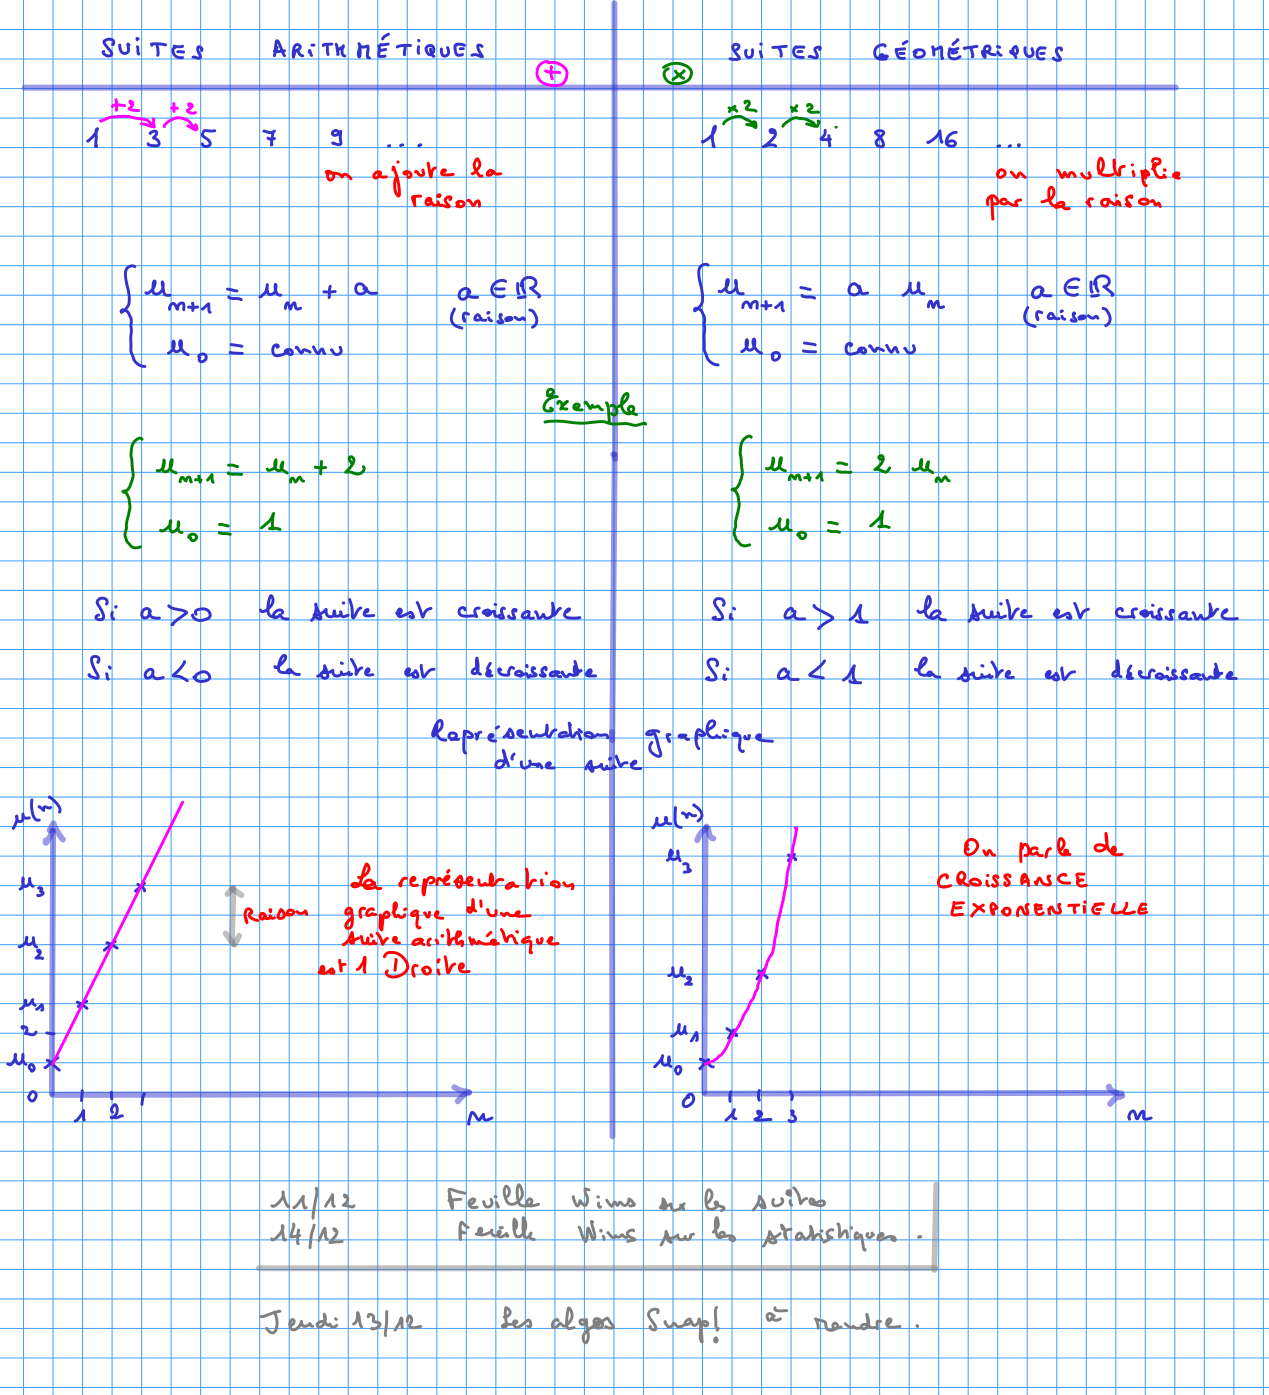 SUITES ARITHMÉTIQUES
+
+2 +2
1 3 5 7 9 ...
on ajoute la
raison
u_{n+1} = u_n + a a ∈ ℝ
(raison)
u_0 = connu
SUITES GÉOMÉTRIQUES
×
×2 ×2
1 2 4 8 16 ...
on multiplie
par la raison
u_{n+1} = a u_n a ∈ ℝ
(raison)
u_0 = connu
Exemple
u_{n+1} = u_n + 2
u_0 = 1
u_{n+1} = 2 u_n
u_0 = 1
Si a > 0 la suite est croissante
Si a < 0 la suite est décroissante
Si a > 1 la suite est croissante
Si a < 1 la suite est décroissante
Représentation graphique
d'une suite
u(n)
u_3
u_2
u_1
2
u_0
0
1 2
n
Raison
La représentation
graphique d'une
suite arithmétique
est 1 Droite
u(n)
u_3
u_2
u_1
u_0
0
1 2 3
n
On parle de
CROISSANCE
EXPONENTIELLE
11/12 Feuille Wims sur les suites
14/12 Feuille Wims sur les statistiques.
Jeudi 13/12 Les algos Snap! à rendre.